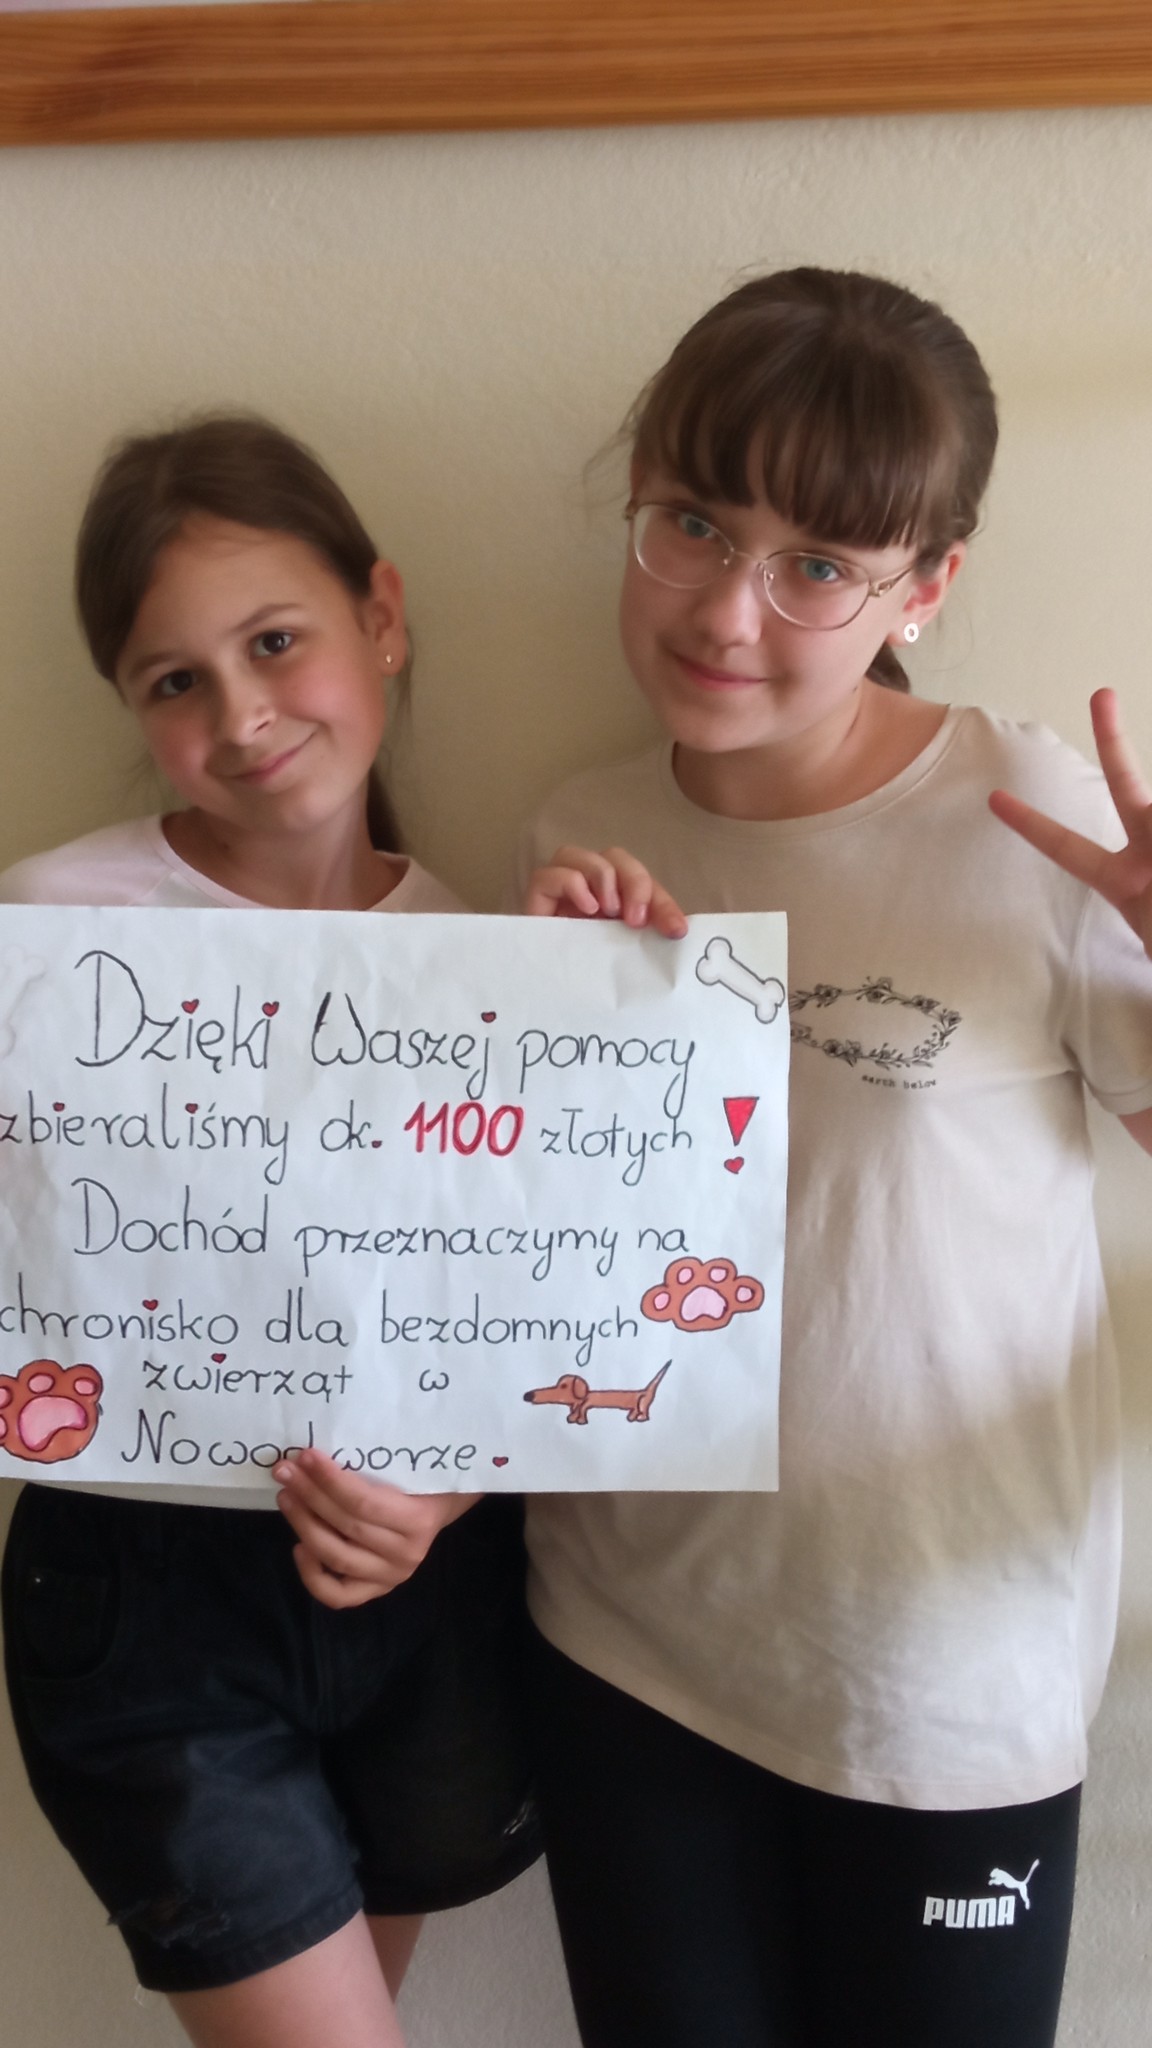 Dzięki Waszej pomocy
zbieraliśmy ok. 1100 złotych!
Dochód przeznaczymy na
chronisko dla bezdomnych
zwierząt w
Nowodworze.
earth below
PUMA